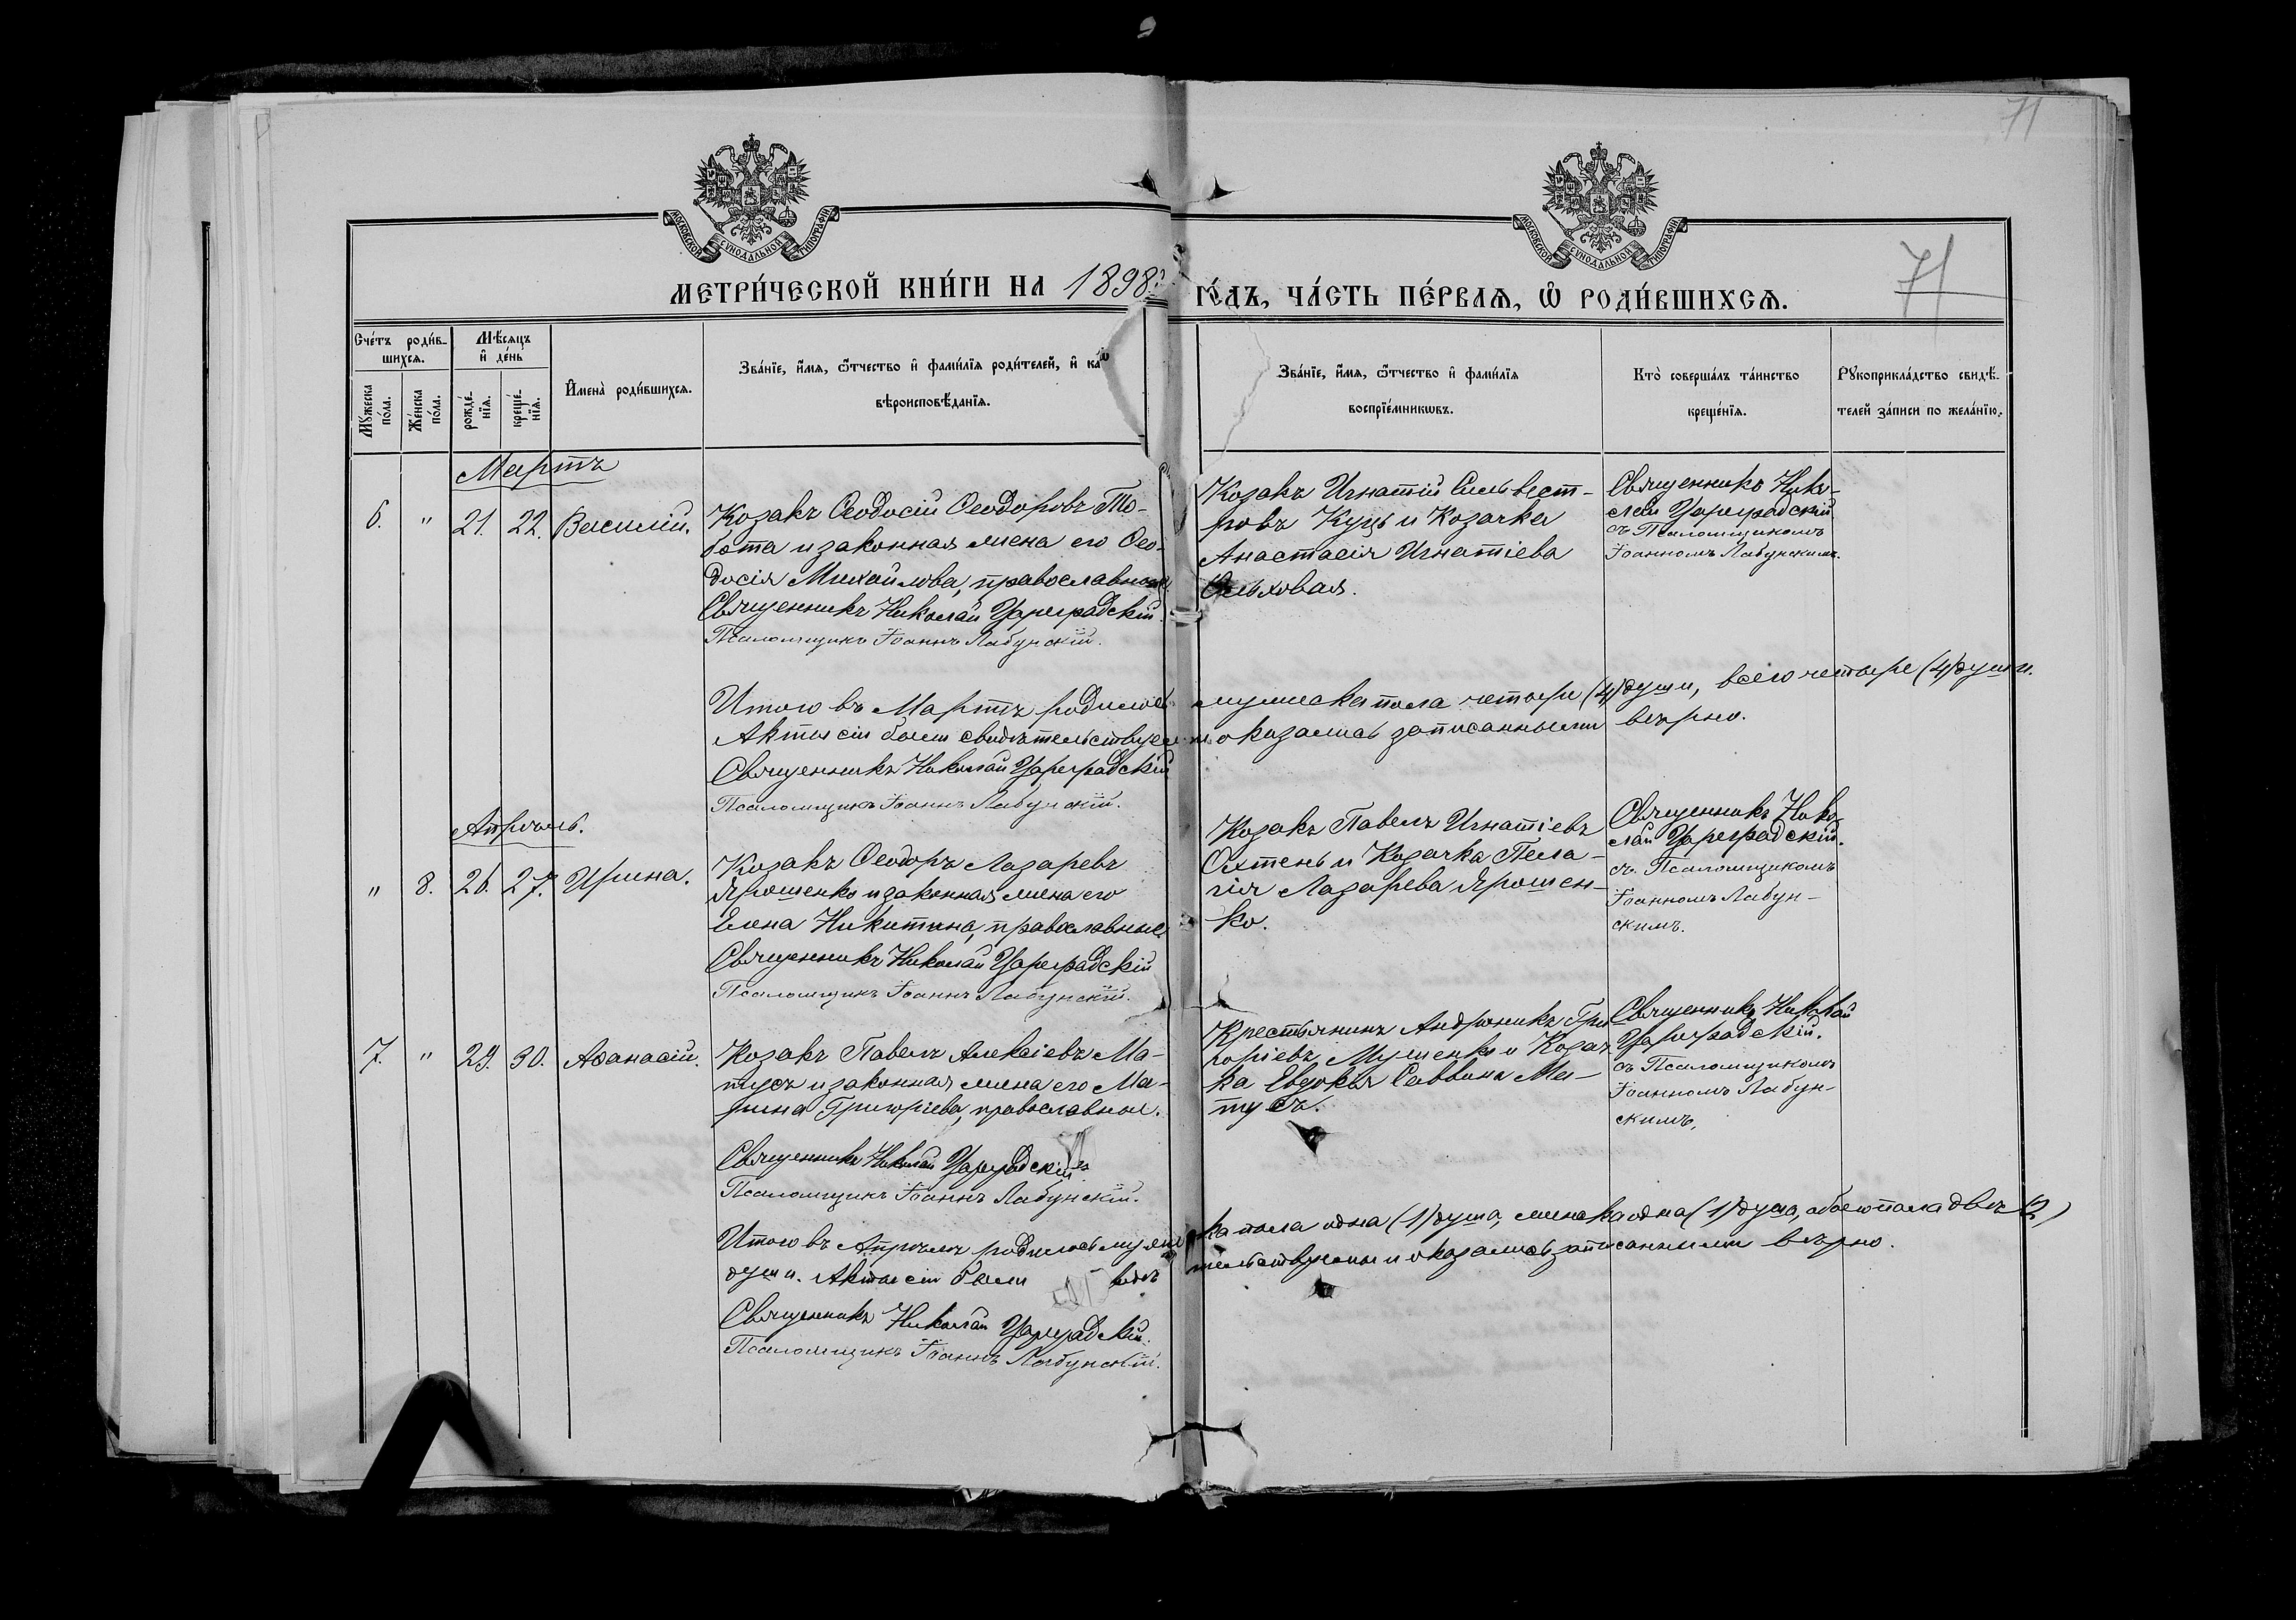 71
МОСКОВСКОЙ СУНОДАЛЬНОЙ ТИПОГРАФІИ
МОСКОВСКОЙ СУНОДАЛЬНОЙ ТИПОГРАФІИ
71
МЕТРИ́ЧЕСКОЙ КНИ́ГИ НА 1898й ГО́ДЪ, ЧА́СТЬ ПЕ́РВАЯ, Ѡ҆ РОДИ́ВШИХСЯ.
Сче́тъ роди́в-
шихся.
Мѣ́сяцъ
и҆ де́нь
Му́жеска
по́ла.
Же́нска
по́ла.
рожде́-
нїя.
креще́-
нїя.
И҆мена̀ роди́вшихся.
Зва́нїе, и҆́мя, ѻ҆́тчество и҆ фами́лїя роди́телей, и҆ како́
вѣроисповѣ́данїя.
Зва́нїе, и҆́мя, ѻ҆́тчество и҆ фами́лїя
воспрїе́мникѡвъ.
Кто̀ соверша́лъ та́инство
креще́нїя.
Рꙋкоприкла́дство свидѣ́-
телей за́писи по жела́нїю.
Мартъ
6. " 21. 22. Василій.
Козакъ Ѳеодосій Ѳеодоровъ То-
бота и законная жена его Ѳео-
досія Михайлова, православные
Священникъ Николай Цареградскій.
Псаломщикъ Іоаннъ Лабунскій.
Козакъ Игнатій Сильвест-
ровъ Куць и Козачка
Анастасія Игнатіева
Ольховая.
Священникъ Нико-
лай Цареградскій
съ Псаломщикомъ
Іоанномъ Лабунскимъ.
Итого въ Мартѣ родилось мужеска пола четыре (4) души, всего четыре (4) души.
Акты сіи были свидѣтельствуемы и оказались записанными вѣрно.
Священникъ Николай Цареградскій
Псаломщикъ Іоаннъ Лабунскій.
Апрѣль.
" 8. 26. 27. Ирина.
Козакъ Ѳеодоръ Лазаревъ
Ярошенко и законная жена его
Елена Никитина, православные.
Священникъ Николай Цареградскій
Псаломщикъ Іоаннъ Лабунскій.
Козакъ Павелъ Игнатіевъ
Охтень и Козачка Пела-
гія Лазарева Ярошен-
ко.
Священникъ Нико-
лай Цареградскій.
съ Псаломщикомъ
Іоанномъ Лабун-
скимъ.
7. " 29. 30. Аѳанасій.
Козакъ Павелъ Алексіевъ Ма-
тусъ и законная жена его Ма-
рина Григоріева, православные.
Священникъ Николай Цареградскій
Псаломщикъ Іоаннъ Лабунскій.
Крестьянинъ Андроникъ Гри-
горіевъ и Козач-
ка Евдокія Саввина Ма-
тусъ.
Священникъ Николай
Цареградскій.
съ Псаломщикомъ
Іоанномъ Лабун-
скимъ.
Итого въ Апрѣлѣ родилось мужеска пола одна (1) душа, женска одна (1) душа, обоего пола двѣ (2)
души. Акты сіи были тельствуемы и оказались записанными вѣрно.
Священникъ Николай Цареградскій.
Псаломщикъ Іоаннъ Лабунскій.